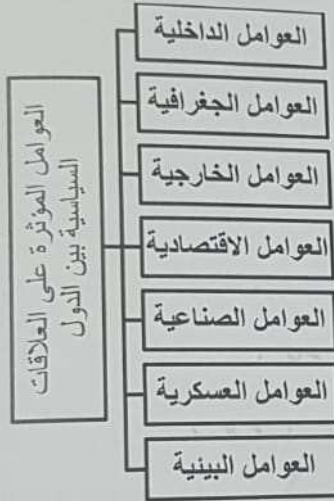 العوامل المؤثرة على العلاقات
السياسية بين الدول
العوامل الداخلية
العوامل الجغرافية
العوامل الخارجية
العوامل الاقتصادية
العوامل الصناعية
العوامل العسكرية
العوامل البيئية